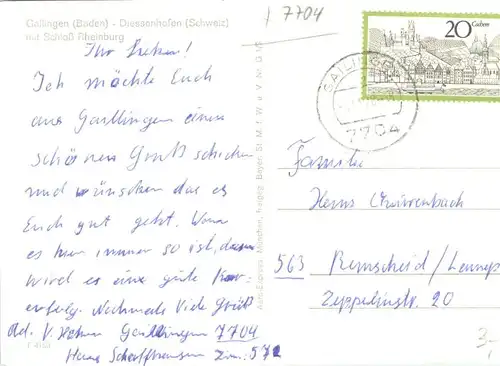 Gailingen (Baden) - Diessenhofen (Schweiz)
mit Schloß Rheinburg
7704
Ihr Lieben!
Ich möchte Euch
aus Gailingen einen
schönen Gruß schicken
und wünschen das es
Euch gut geht. Wenn
es hier immer so ist, dann
wird es eine gute Kur-
erfolg. Nochmals Viele Grüße
Ad. V. Gailingen 7704
Haus Schaffhausen Zim: 572
20
GAILINGEN
7704
Familie
Hans
563 Remscheid/Lennep
Zeppelinstr. 20